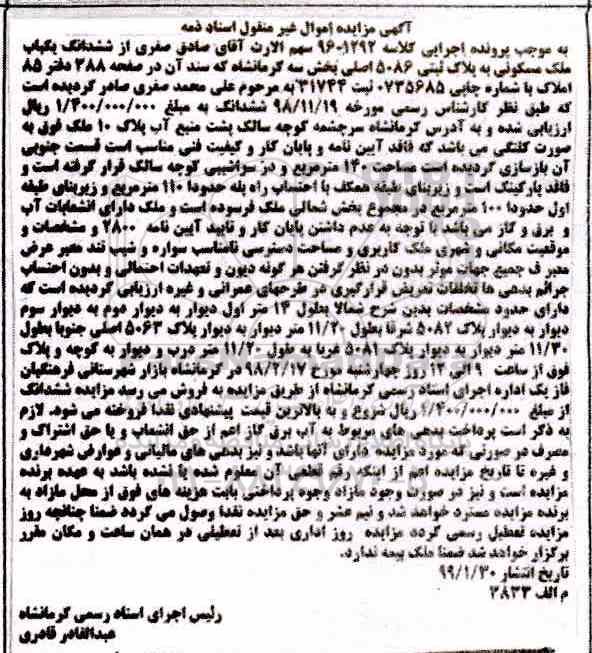 آگهی مزایده اموال غیر منقول اسناد ذمه
به موجب پرونده اجرایی کلاسه ۹۶۰۱۲۹۲ سهم الارث آقای صادق صفری از ششدانگ یکباب
ملک مسکونی به پلاک ثبتی ۵۰۸۶ اصلی بخش سه کرمانشاه که سند آن در صفحه ۳۸۸ دفتر ۸۵
املاک با شماره چاپی ۰۷۳۵۶۸۵ ثبت ۳۱۷۴۴ به مرحوم علی محمد صفری صادر گردیده است
که طبق نظر کارشناس رسمی مورخه ۹۸/۱۱/۱۹ ششدانگ به مبلغ ۱/۴۰۰/۰۰۰/۰۰۰ ریال
ارزیابی شده و به آدرس کرمانشاه سرچشمه کوچه سالک پشت منبع آب پلاک ۱۰ ملک فوق به
صورت کلنگی می باشد که فاقد آیین نامه و پایان کار و کیفیت فنی مناسب است قسمت جنوبی
آن بازسازی گردیده است مساحت ۱۴۰ مترمربع و در سراشیبی کوچه سالک قرار گرفته است و
فاقد پارکینگ است و زیربنای طبقه همکف با احتساب راه پله حدودا ۱۱۰ مترمربع و زیربنای طبقه
اول حدودا ۱۰۰ مترمربع در مجموع بخش شمالی ملک فرسوده است و ملک دارای انشعابات آب
و برق و گاز می باشد با توجه به عدم داشتن پایان کار و تایید آیین نامه ۲۸۰۰ و مشخصات و
موقعیت مکانی و شهری ملک کاربری و مساحت دسترسی نامناسب سواره و شیب تند معبر عرض
معبر ف جمیع جهات موثر بدون در نظر گرفتن هر گونه دیون و تعهدات احتمالی و بدون احتساب
جرائم بدهی ها تخلفات تعریض قرارگیری در طرحهای عمرانی و غیره ارزیابی گردیده است که
دارای حدود مشخصات بدین شرح شمالا بطول ۱۴ متر اول دیوار به دیوار دوم به دیوار سوم
دیوار به دیوار پلاک ۵۰۸۲ شرقا بطول ۱۱/۲۰ متر دیوار به دیوار پلاک ۵۰۶۳ اصلی جنوبا بطول
۱۱/۳۰ متر دیوار به دیوار پلاک ۵۰۸۱ غربا به طول ۱۱/۲۰ متر درب و دیوار به کوچه و پلاک
فوق از ساعت ۹ الی ۱۲ روز چهارشنبه مورخ ۹۸/۲/۱۷ در کرمانشاه بازار شهرستانی فرهنگیان
فاز یک اداره اجرای اسناد رسمی کرمانشاه از طریق مزایده به فروش می رسد مزایده ششدانگ
از مبلغ ۱/۴۰۰/۰۰۰/۰۰۰ ریال شروع و به بالاترین قیمت پیشنهادی نقدا فروخته می شود. لازم
به ذکر است پرداخت بدهی های مربوط به آب برق گاز اعم از حق انشعاب و یا حق اشتراک و
مصرف در صورتی که مورد مزایده دارای آنها باشد و نیز بدهی های مالیاتی و عوارض شهرداری
و غیره تا تاریخ مزایده اعم از اینکه رقم قطعی آن معلوم شده یا نشده باشد به عهده برنده
مزایده است و نیز در صورت وجود مازاد وجوه پرداختی بابت هزینه های فوق از محل مازاد به
برنده مزایده مسترد خواهد شد و نیم عشر و حق مزایده نقدا وصول می گردد ضمنا چنانچه روز
مزایده تعطیل رسمی گردد مزایده روز اداری بعد از تعطیلی در همان ساعت و مکان مقرر
برگزار خواهد شد ضمنا ملک بیمه ندارد.
تاریخ انتشار ۹۹/۱/۳۰
م الف ۳۸۳۳
رئیس اجرای اسناد رسمی کرمانشاه
عبدالقادر قادری